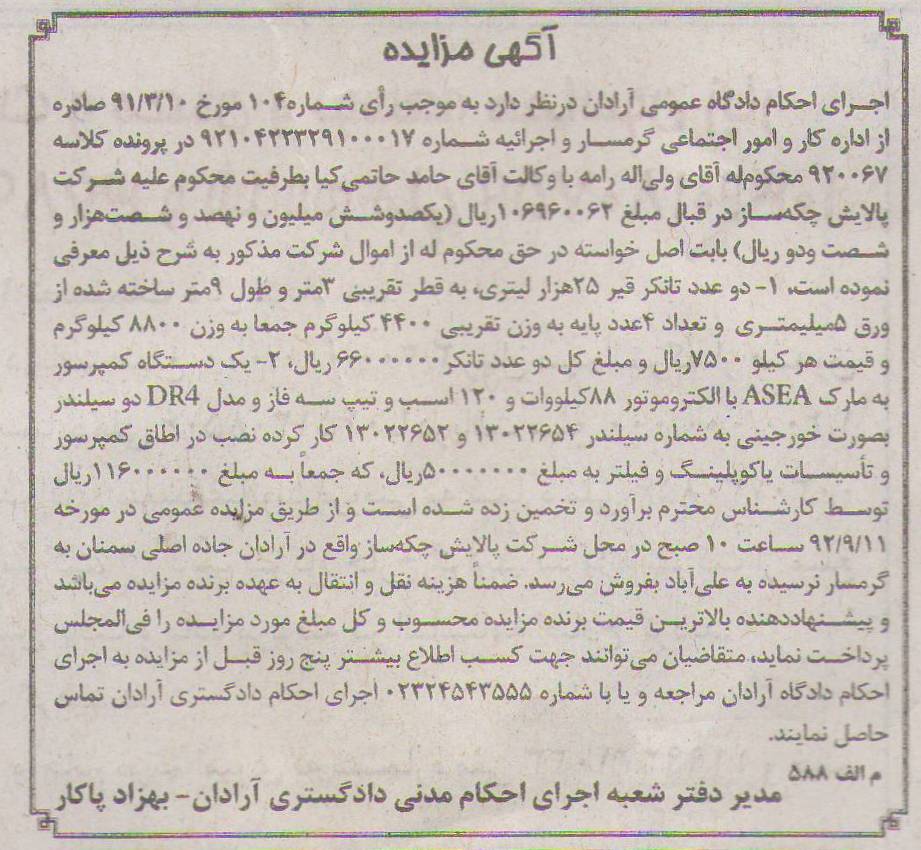 آگهی مزایده
اجرای احکام دادگاه عمومی آرادان درنظر دارد به موجب رأی شماره۱۰۴ مورخ ۹۱/۳/۱۰ صادره
از اداره کار و امور اجتماعی گرمسار و اجرائیه شماره ۹۲۱۰۴۲۲۳۲۹۱۰۰۰۱۷ در پرونده کلاسه
۹۲۰۰۶۷ محکوم‌له آقای ولی‌اله رامه با وکالت آقای حامد حاتمی‌کیا بطرفیت محکوم علیه شرکت
پالایش چکه‌ساز در قبال مبلغ ۱۰۶۹۶۰۰۶۲ریال (یکصدوشش میلیون و نهصد و شصت‌هزار و
شصت ودو ریال) بابت اصل خواسته در حق محکوم له از اموال شرکت مذکور به شرح ذیل معرفی
نموده است، ۱- دو عدد تانکر قیر ۲۵هزار لیتری، به قطر تقریبی ۳متر و طول ۹متر ساخته شده از
ورق ۵میلیمتری و تعداد ۴عدد پایه به وزن تقریبی ۴۴۰۰ کیلوگرم جمعا به وزن ۸۸۰۰ کیلوگرم
و قیمت هر کیلو ۷۵۰۰ریال و مبلغ کل دو عدد تانکر ۶۶۰۰۰۰۰۰ ریال، ۲- یک دستگاه کمپرسور
به مارک ASEA با الکتروموتور ۸۸کیلووات و ۱۲۰ اسب و تیپ سه فاز و مدل DR4 دو سیلندر
بصورت خورجینی به شماره سیلندر ۱۳۰۲۲۶۵۴ و ۱۳۰۲۲۶۵۲ کار کرده نصب در اطاق کمپرسور
و تأسیسات یاکوپلینگ و فیلتر به مبلغ ۵۰۰۰۰۰۰۰ریال، که جمعاً به مبلغ ۱۱۶۰۰۰۰۰۰ریال
توسط کارشناس محترم برآورد و تخمین زده شده است و از طریق مزایده عمومی در مورخه
۹۲/۹/۱۱ ساعت ۱۰ صبح در محل شرکت پالایش چکه‌ساز واقع در آرادان جاده اصلی سمنان به
گرمسار نرسیده به علی‌آباد بفروش می‌رسد. ضمناً هزینه نقل و انتقال به عهده برنده مزایده می‌باشد
و پیشنهاددهنده بالاترین قیمت برنده مزایده محسوب و کل مبلغ مورد مزایده را فی‌المجلس
پرداخت نماید، متقاضیان می‌توانند جهت کسب اطلاع بیشتر پنج روز قبل از مزایده به اجرای
احکام دادگاه آرادان مراجعه و یا با شماره ۰۲۳۲۴۵۴۳۵۵۵ اجرای احکام دادگستری آرادان تماس
حاصل نمایند.
م الف ۵۸۸
مدیر دفتر شعبه اجرای احکام مدنی دادگستری آرادان- بهزاد پاکار